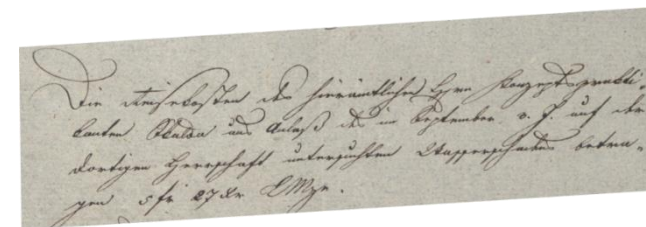 Die Reisekosten des hierämtlichen Hrn Konzeptsprakti-
kanten Skalda aus Anlaß des im September v. J. auf der
dortigen Herrschaft untersuchten Wasserschadens betra-
gen 5 fr 27 Xr CMze.